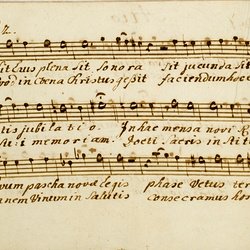 2.
Sit Laus plena Sit Sonora Sit jucunda Sit
quod in Cena Christus gessit faciendum hoc
tis jubilatio. In hac mensa novi
sui memoriam. Docti Sacris instit
vum pascha novæ legis phase Vetus ter
panem Vinum in Salutis consecramus hos